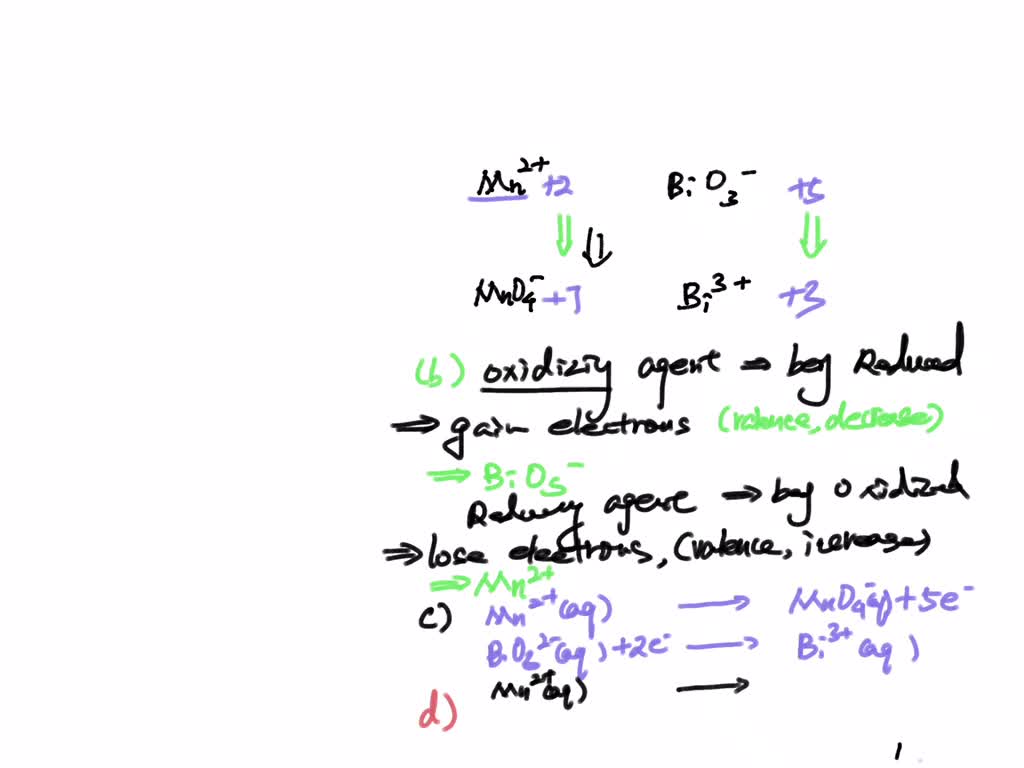 Mn²⁺ +2 BiO₃⁻ +5
⇓ ⇓ ⇓
MnO₄⁻ +7 Bi³⁺ +3
(b) oxidiziy agent ⇒ beg Reduced
⇒ gain electrons (valence, decrease)
⇒ BiO₃⁻
Reducing agent ⇒ beg oxidized
⇒ lose electrons, (valence, increase)
⇒ Mn²⁺
c) Mn²⁺(aq) → MnO₄⁻(aq) + 5e⁻
(aq) + 2e⁻ → Bi³⁺(aq)
Mn²⁺(aq) →
d)